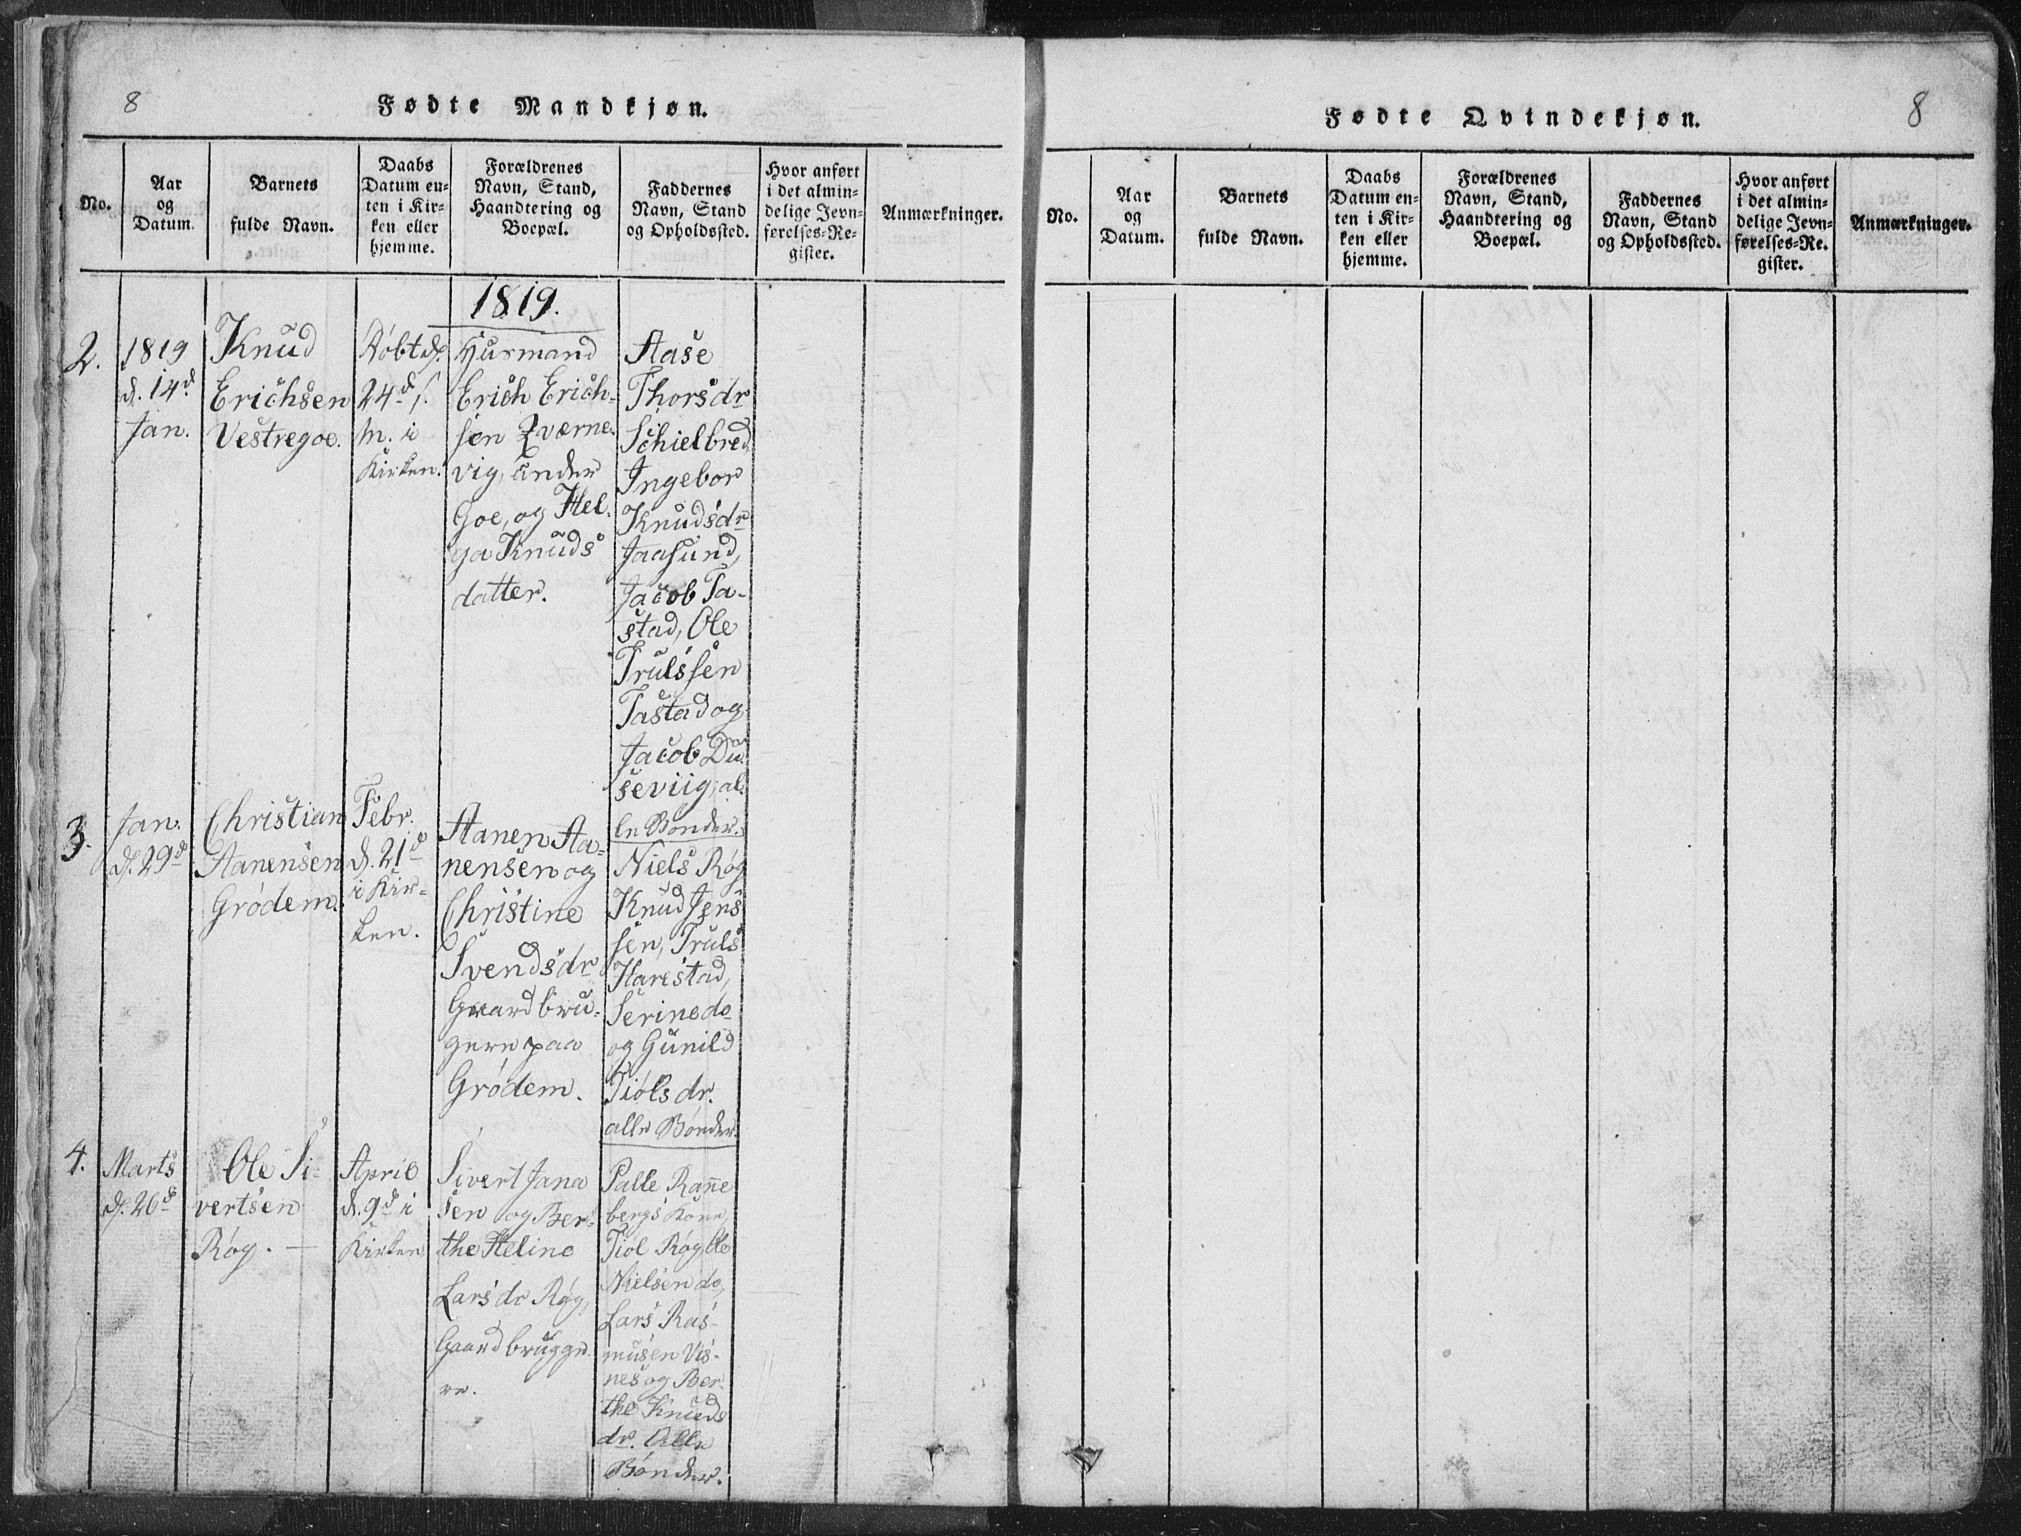 8
Fødte Mandkjøn.
No.
Aar
og
Datum.
Barnets
fulde Navn.
Daabs
Datum en-
ten i Kir-
ken eller
hjemme.
Forældrenes
Navn, Stand,
Haandtering og
Boepæl.
Faddernes
Navn, Stand
og Opholdssted.
Hvor anført
i det almin-
delige Jevn-
førelses-Re-
gister.
Anmærkninger.
1819.
2.
1819
d. 14d
Jan.
Knud
Erichsen
Vestregoe.
døbt d.
24d s.
m. i
Kirken.
Huusmand
Erich Erich-
sen Qværne-
vig, under
Goe, og Hel-
ga Knuds
datter.
Aase
Thorsdr
Schielbred
Ingebor
Knudsdr
Jaasund,
Jacob Ta-
stad, Ole
Trulssen
Tastad og
Jacob Du-
seviig, al-
le Bønder.
3.
Jan.
d. 29d
Christian
Aanensen
Grødem.
Febr.
d. 21d
i Kir-
ken.
Aanen Aa-
nensen og
Christine
Svendsdr
Gaardbru-
gere paa
Grødem.
Niels Røg
Knud Jens
sen, Truls
Harestad,
Serine do
og Gunild
Tiølsdr.
alle Bønder.
4.
Marts
d. 26d
Ole Si-
vertsen
Røg. —
April
d. 9d i
Kirken
Sivert Jana
sen og Ber-
the Heline
Larsdr Røg,
Gaardbrugge-
re.
Palle Ranne
bergs Kone,
Tiol Røg, Ole
Nielsen do,
Lars Ras-
musen Vis-
nes og Ber-
the Knuds
dr. Alle
Bønder.
Fødte Qvindekjøn.
8
No.
Aar
og
Datum.
Barnets
fulde Navn.
Daabs
Datum en-
ten i Kir-
ken eller
hjemme.
Forældrenes
Navn, Stand,
Haandtering og
Boepæl.
Faddernes
Navn, Stand
og Opholdssted.
Hvor anført
i det almin-
delige Jevn-
førelses-Re-
gister.
Anmærkninger.